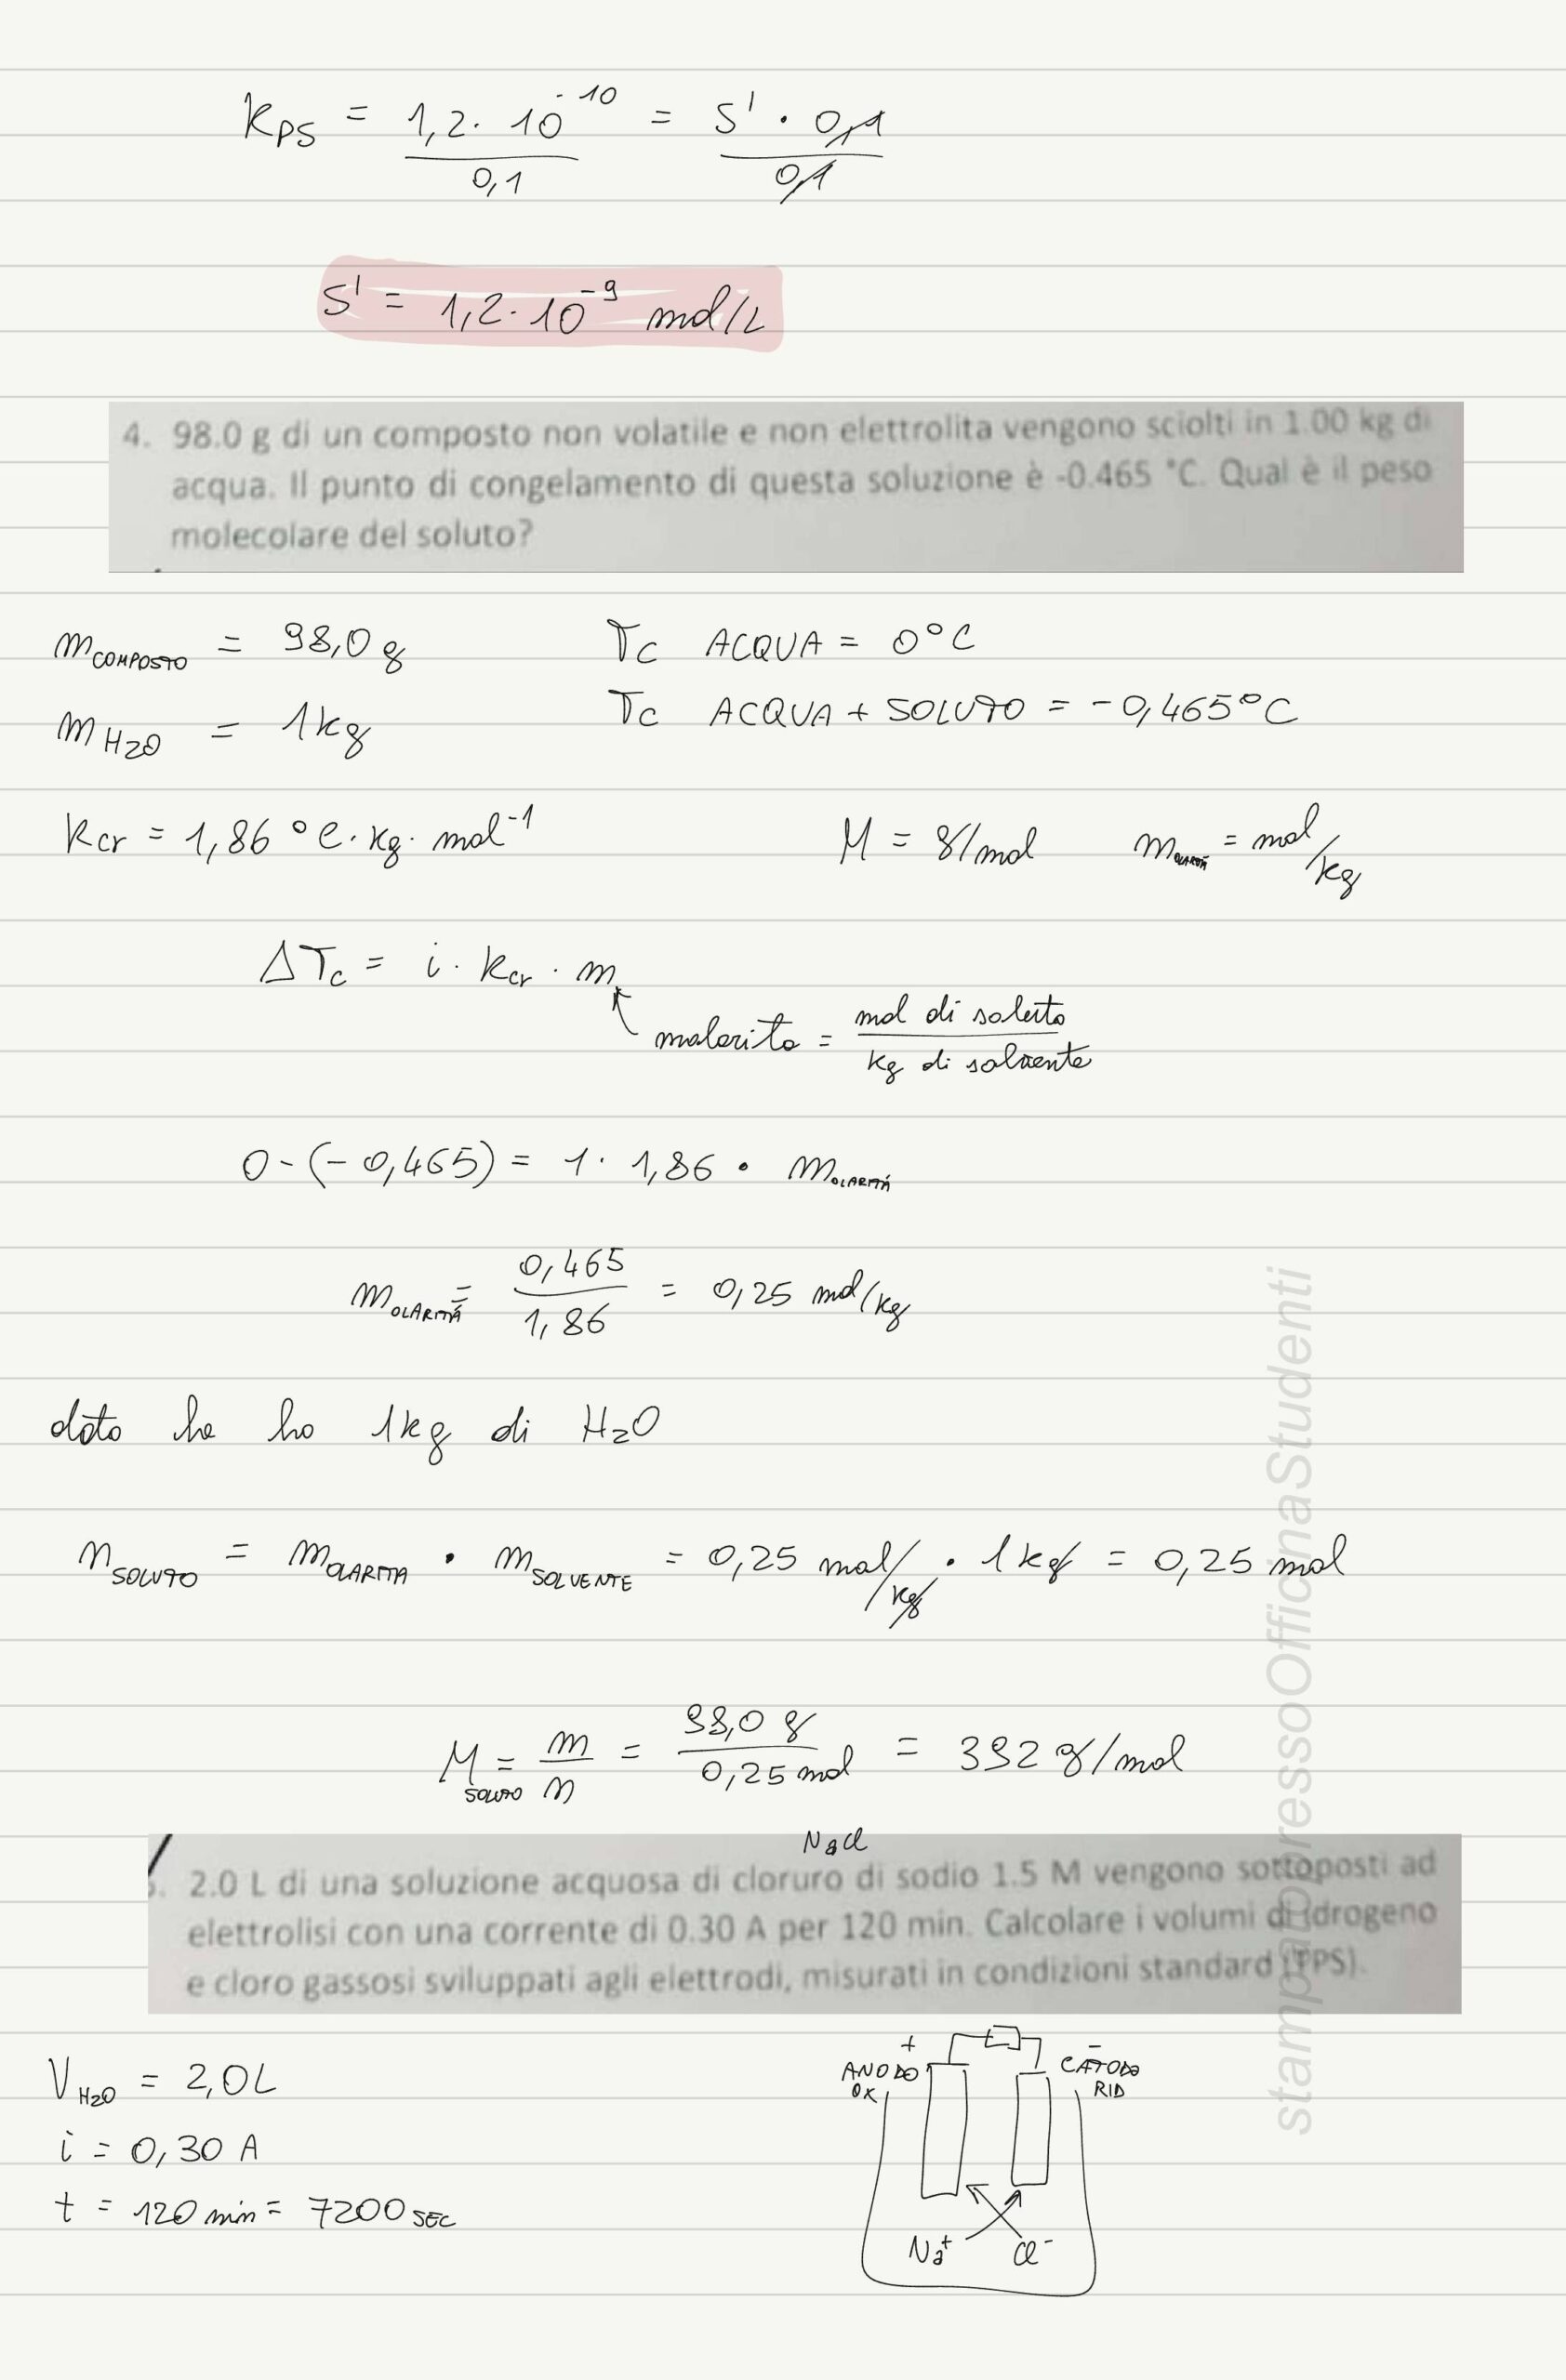 KPS = 1,2 · 10^-10 / 0,1 = S' · 0,1 / 0,1
S' = 1,2 · 10^-9 mol/L
4. 98.0 g di un composto non volatile e non elettrolita vengono sciolti in 1.00 kg di
acqua. Il punto di congelamento di questa soluzione è -0.465 °C. Qual è il peso
molecolare del soluto?
m COMPOSTO = 98,0 g Tc ACQUA = 0°C
m H2O = 1 kg Tc ACQUA + SOLUTO = -0,465°C
Kcr = 1,86 °C · kg · mol^-1 M = g/mol mOLARITÀ = mol/kg
ΔTc = i · Kcr · m
molarità = mol di soluto / kg di solvente
0 - (- 0,465) = 1 · 1,86 · mOLARITÁ
mOLARITÁ = 0,465 / 1,86 = 0,25 mol/kg
dato he ho 1kg di H2O
n SOLUTO = mOLARITA · m SOLVENTE = 0,25 mol/kg · 1 kg = 0,25 mol
M SOLUTO = m / n = 98,0 g / 0,25 mol = 392 g/mol
NaCl
. 2.0 L di una soluzione acquosa di cloruro di sodio 1.5 M vengono sottoposti ad
elettrolisi con una corrente di 0.30 A per 120 min. Calcolare i volumi di idrogeno
e cloro gassosi sviluppati agli elettrodi, misurati in condizioni standard (TPS).
V H2O = 2,0L
i = 0,30 A
t = 120 min = 7200 SEC
+ -
ANODO CATODO
OX RID
Na+ Cl-
stampatopressoOfficinaStudenti